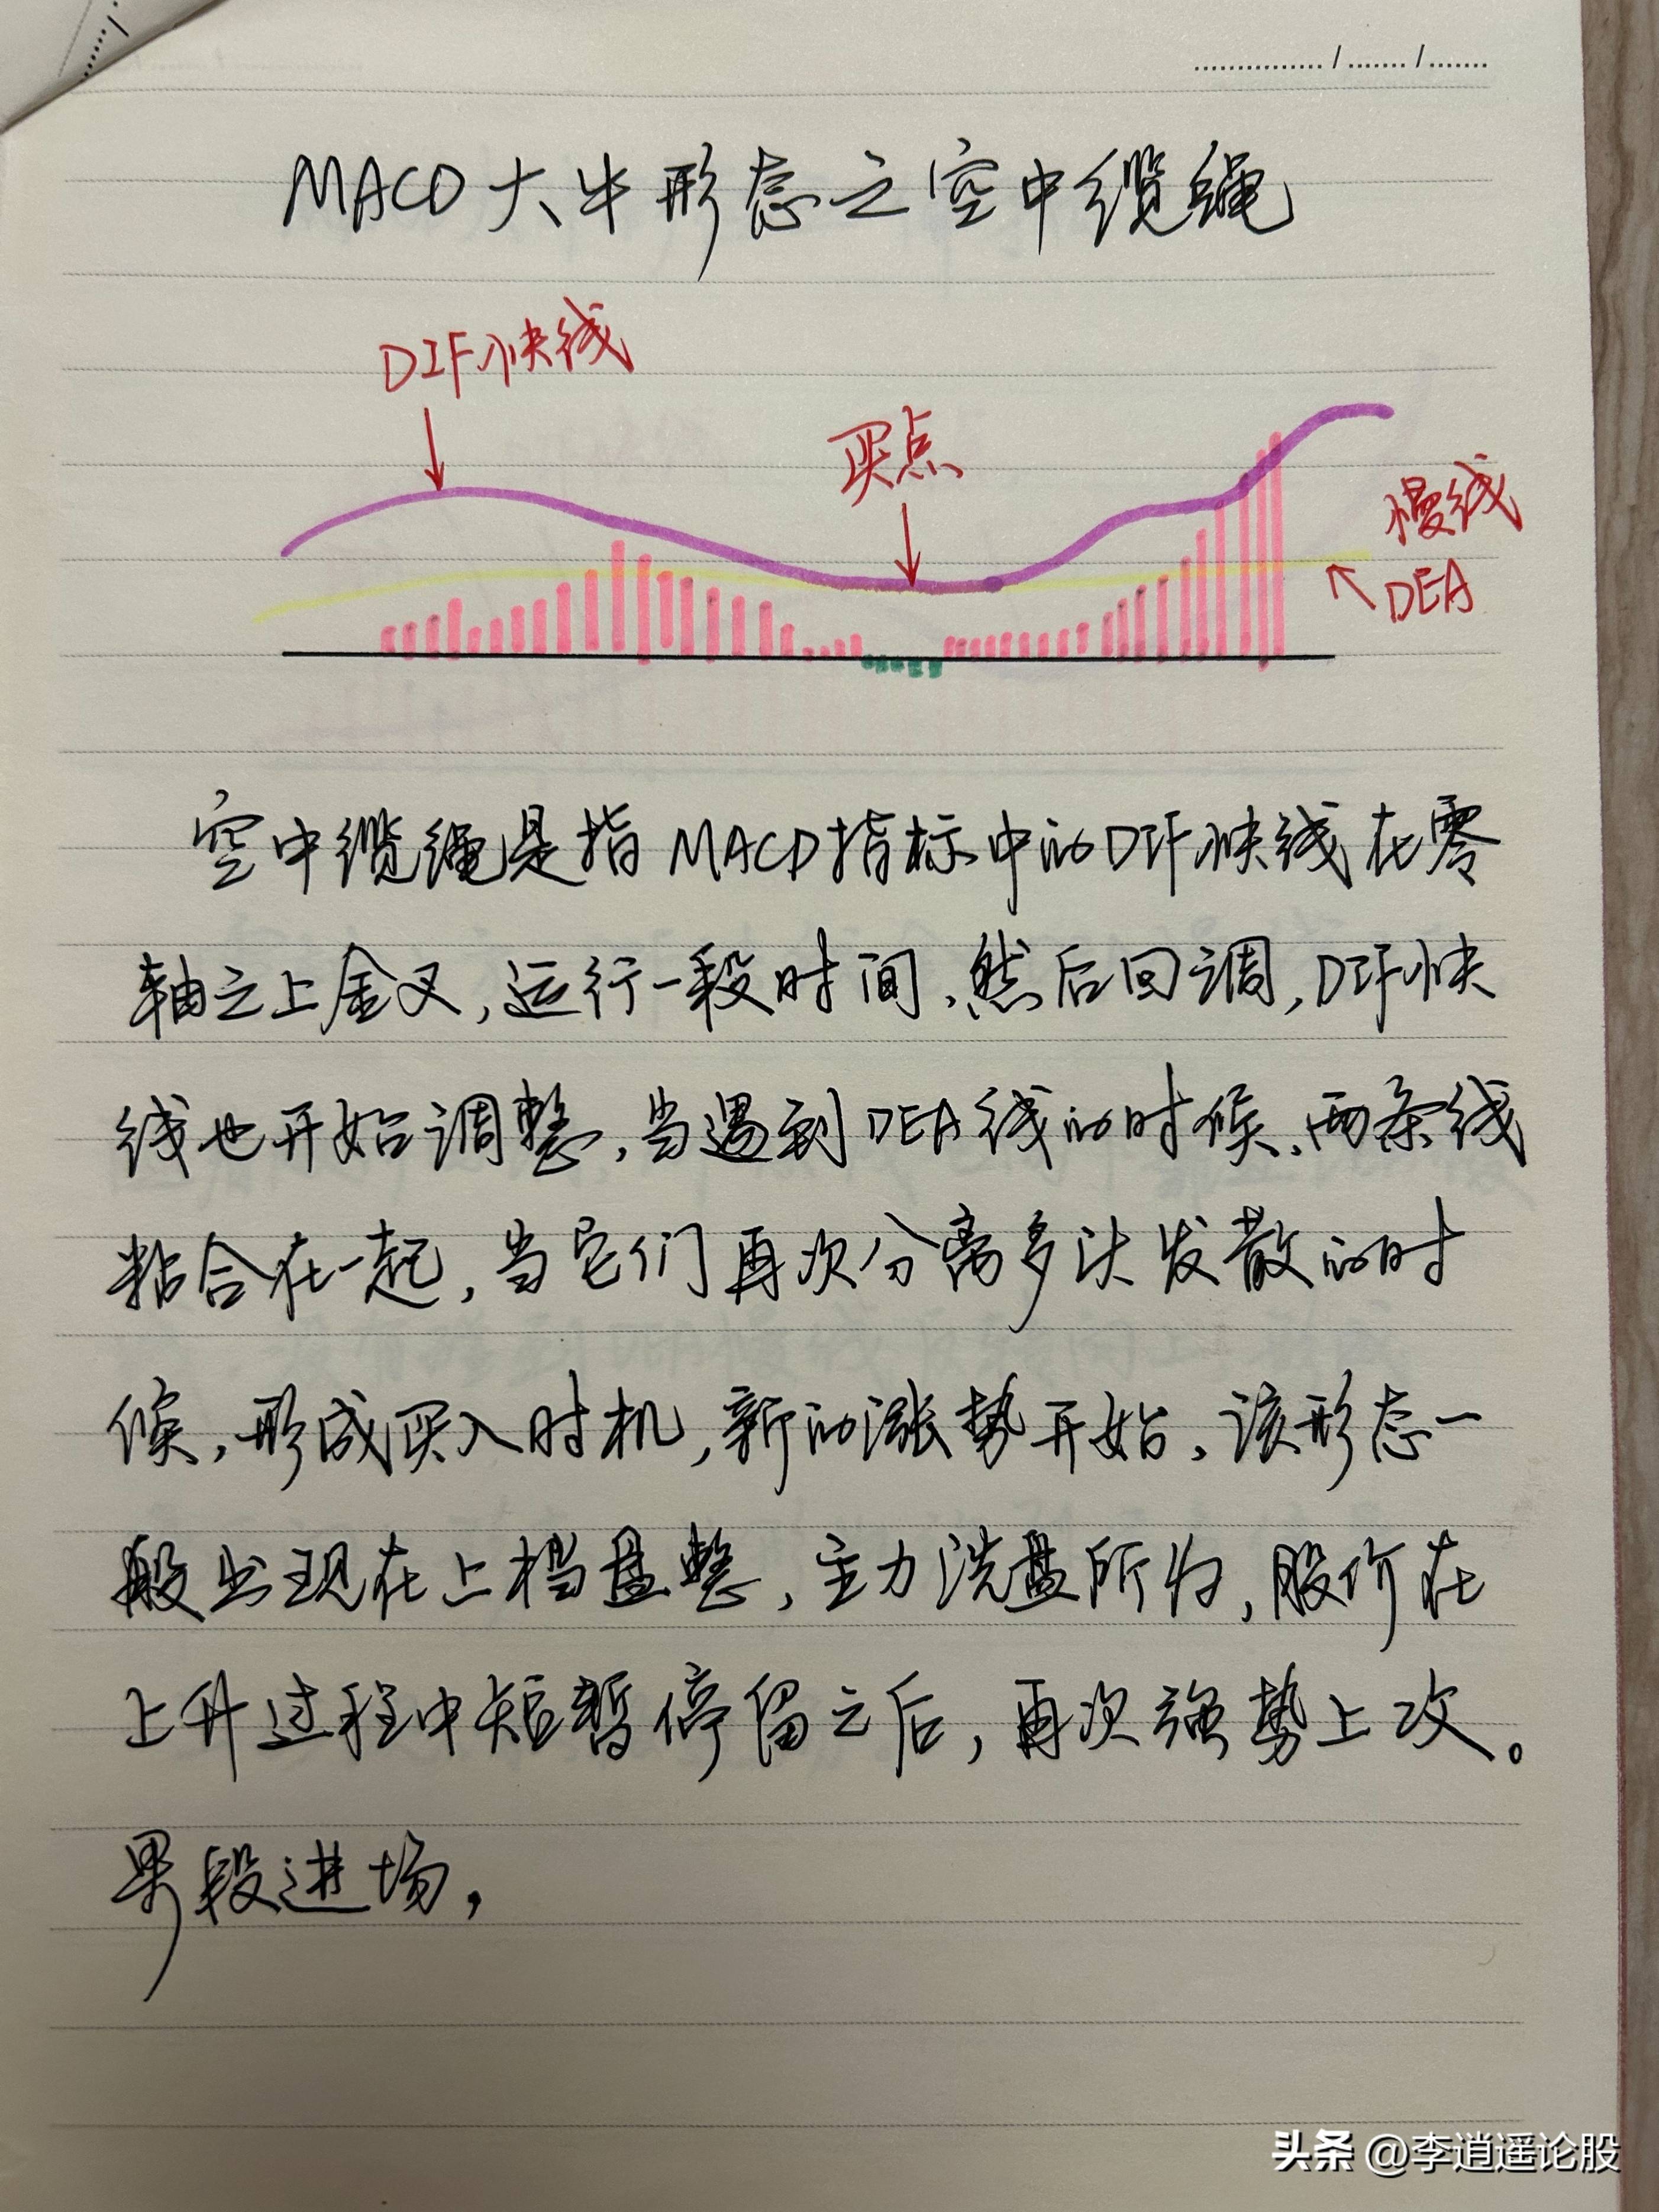 ............... / ....... / .......
MACD大牛形态之空中缆绳
DIF快线
买点
慢线
DEA
空中缆绳是指MACD指标中的DIF快线在零
轴之上金叉,运行一段时间、然后回调,DIF快
线也开始调整,当遇到DEA线的时候、两条线
粘合在一起,当它们再次分离多头发散的时
候,形成买入时机,新的涨势开始、该形态一
般出现在上档盘整,主力洗盘所为,股价在
上升过程中短暂停留之后,再次强势上攻。
果段进场,
头条 @李逍遥论股